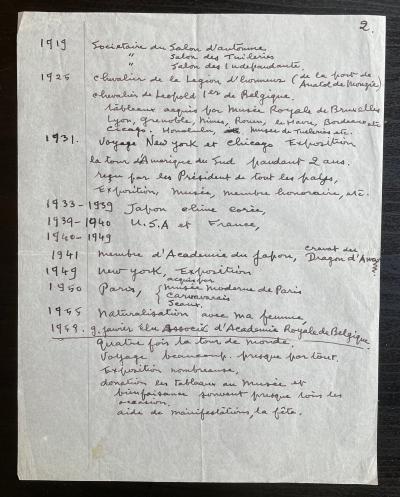 2.
1919 Societaire du Salon d'automne,
" Salon des Tuileries
" Salon des Indépendants,
1925 chevalier de la Legion d'honneur (de la part de Anatol de Monzie)
chevalier de Leopold 1er de Belgique.
tableaux acquis par Musée Royale de Bruxelles
Lyon, Grenoble, Nimes, Rouen, le Havre, Bordeaux etc
Cicago. Honolulu, musée de Tuileries etc.
1931. Voyage New york et chicago Exposition
la tour d'Amerique du Sud pandant 2 ans.
reçu par les Président de tout les palys,
Exposition, Musée, membre honoraire, etc.
1933-1939 Japon chine corée,
1939-1940 U.S.A et France,
1940-1949
1941 membre d'Academie du Japon, cravat du Dragon d'Annam
1949 New york, Exposition
1950 Paris, { acquis par Musée Moderne de Paris
Carnavarais
Sceaux.
1955 Naturalisation avec ma femme,
1959. 9. janvier Elu Associé d'Academie Royale de Belgique.
quatre fois la tour de monde.
Voyage beaucoup. presque partout.
Exposition nombreuse,
donation les tableaux au Musée et
bienfaisance souvent presque tous les
occasion.
aide de manifestations, la fête.